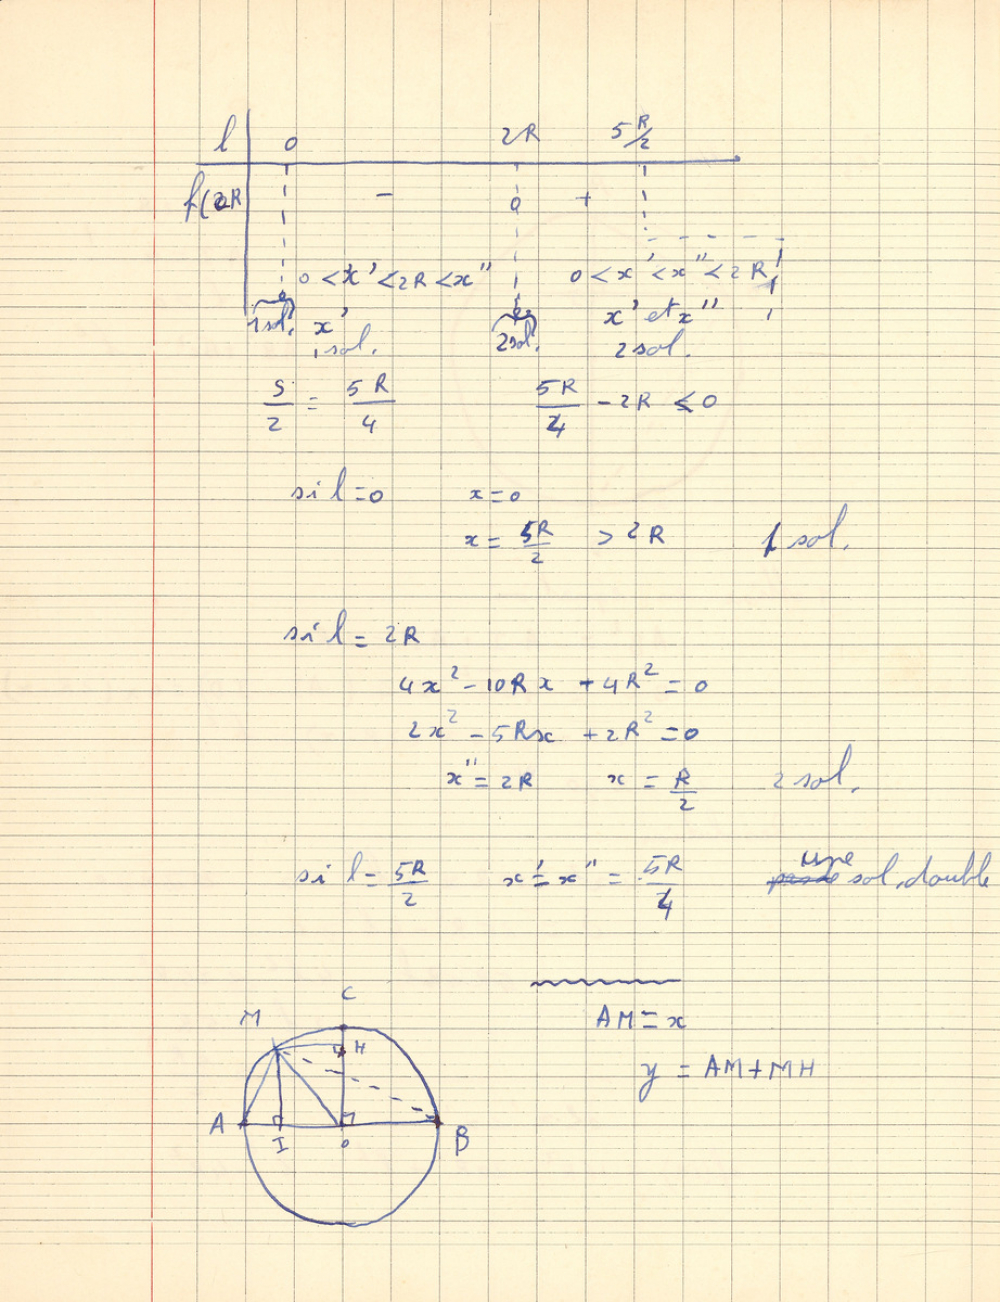 l 0 2R 5R/2
f(2R - 0 +
0 < x' < 2R < x" 0 < x' < x" < 2R
1 sol. x' 2 sol. x' et x"
1 sol. 2 sol.
S/2 = 5R/4 5R/4 - 2R ≤ 0
si l = 0 x = 0
x = 5R/2 > 2R 1 sol.
si l = 2R
4x² - 10Rx + 4R² = 0
2x² - 5Rx + 2R² = 0
x" = 2R x = R/2 2 sol.
si l = 5R/2 x' = x" = 5R/4 une sol. double
C
M AM = x
H
y = AM + MH
A I O B